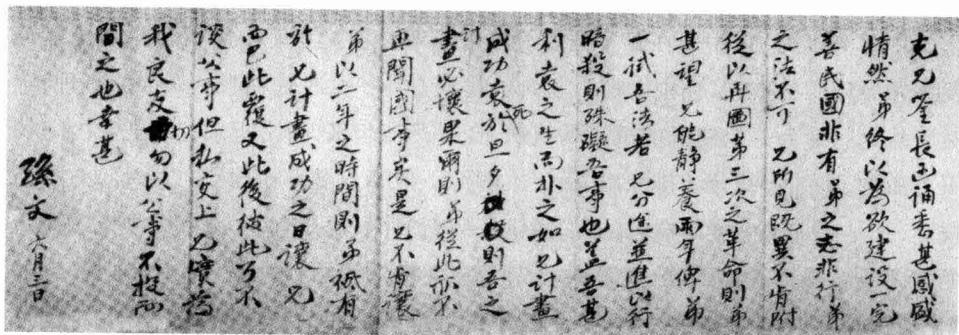 克兄鉴長函誦悉甚感盛
情然弟終以為欲建設一完
善民國非有弟之志非行弟
之法不可 兄所見既異不肯附
從以再圖第三次之革命則弟
甚望 兄能靜養兩年俾弟
一試吾法若 兄分途並進以行
暗殺則殊礙吾事也蓋吾甚
利袁之生而扑之如 兄計畫
成功袁死於旦夕則吾之計
畫必壞果爾則弟從此亦不
再聞國事矣是兄不肯讓
弟以二年之時間則弟祗有
於 兄計畫成功之日讓 兄
而已此覆又此後彼此可不
談公事但私交上 兄實為
我良友切勿以公事不投而
間之也幸甚
孫文 六月三日